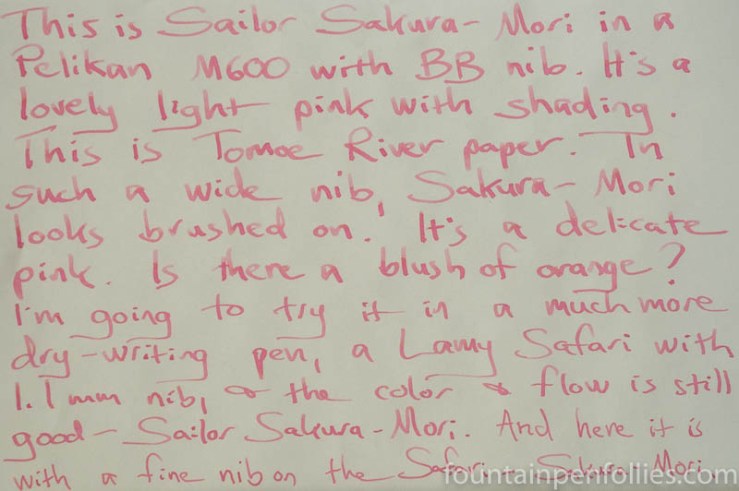 This is Sailor Sakura-Mori in a
Pelikan M600 with BB nib. It's a
lovely light pink with shading.
This is Tomoe River paper. In
such a wide nib, Sakura-Mori
looks brushed on. It's a delicate
pink. Is there a blush of orange?
I'm going to try it in a much more
dry-writing pen, a Lamy Safari with
1.1 mm nib, & the color & flow is still
good - Sailor Sakura-Mori. And here it is
with a fine nib on the Safari. Sakura-Mori
fountainpenfollies.com